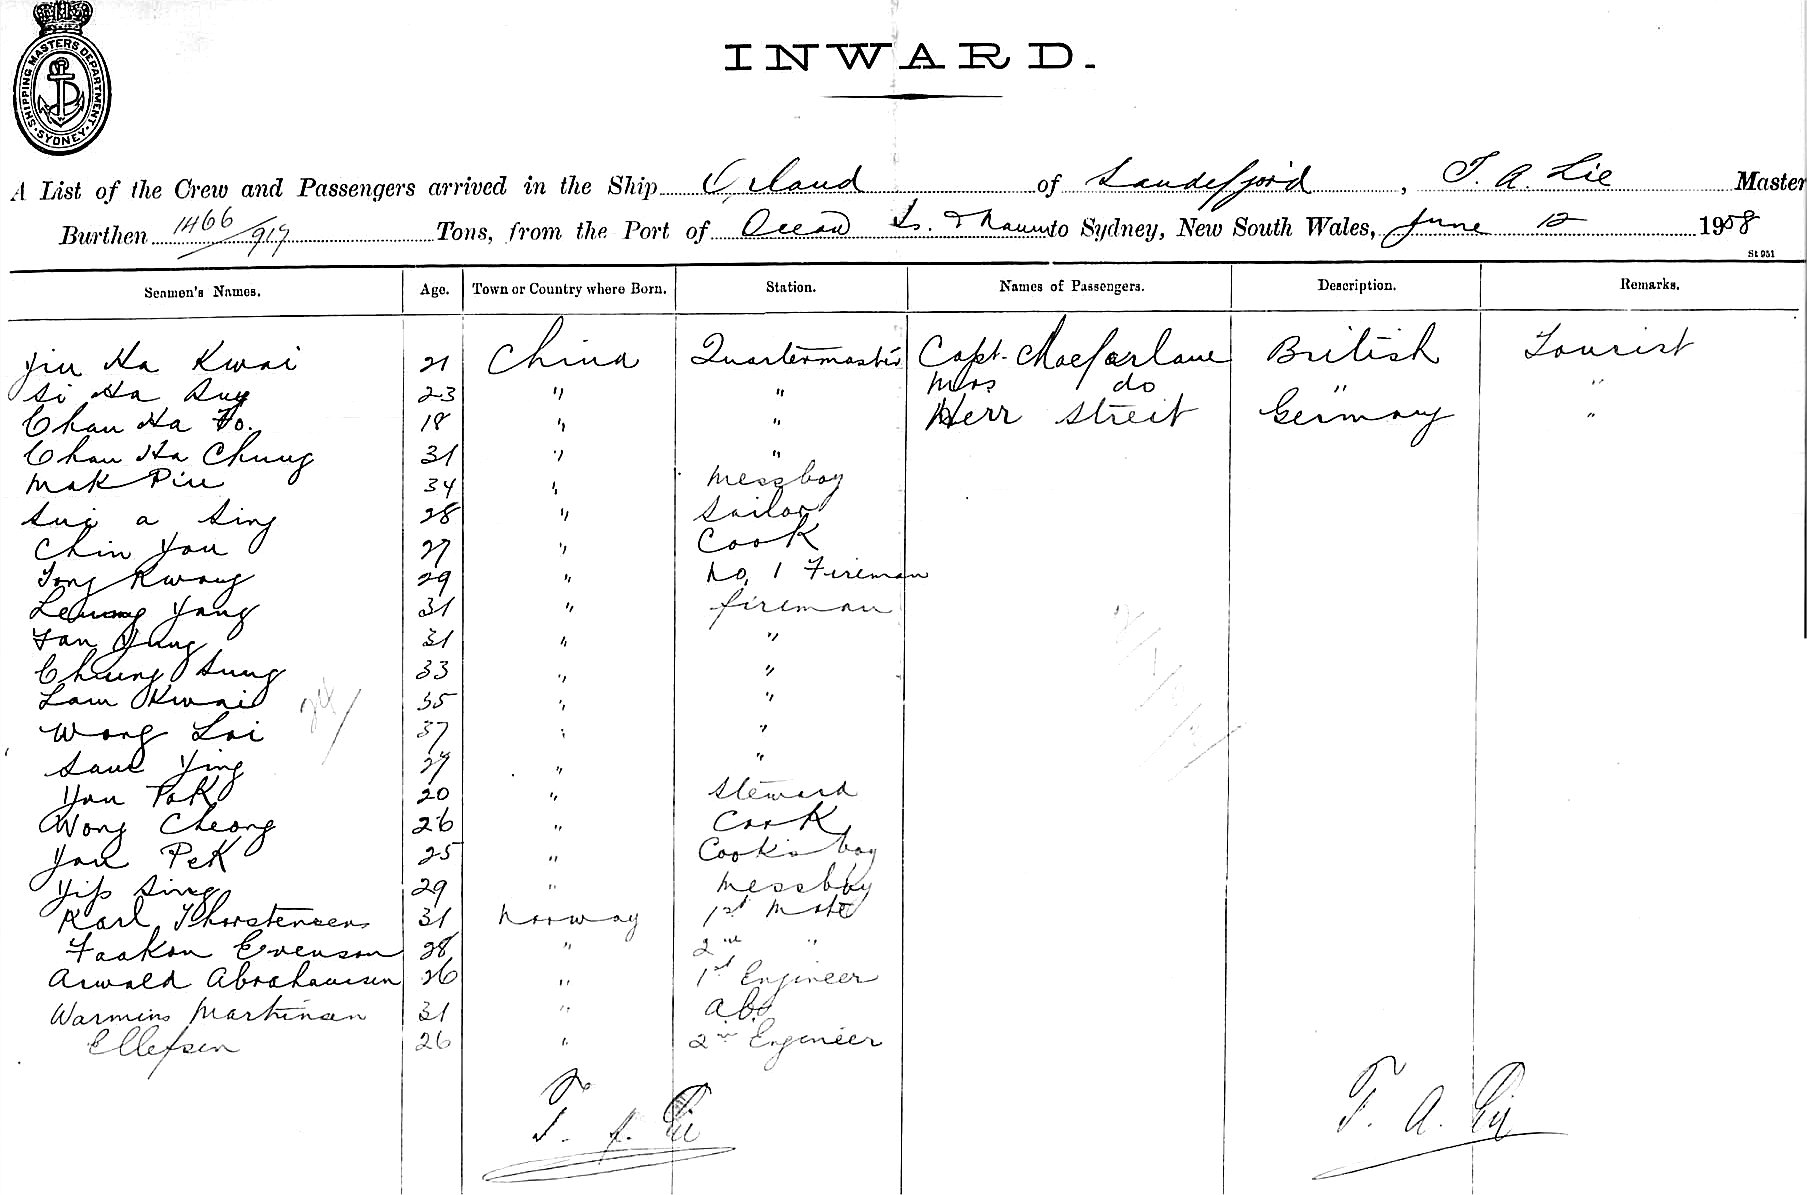 SHIPPING MASTERS DEPARTMENT · SYDNEY ·
INWARD.
A List of the Crew and Passengers arrived in the Ship of Sandefjord, T. A. Lie Master
Burthen 1466/917 Tons, from the Port of Ocean Is. to Sydney, New South Wales, June 12 1908
St 951
Seamen's Names. Age. Town or Country where Born. Station. Names of Passengers. Description. Remarks.
Yiu Ha Kwai 21 China Quartermaster Capt. Macfarlane British Tourist
Si Ha Suy 23 " " Mrs do " "
Chan Ha Fo. 18 " " Herr Streit Germany "
Chan Ha Chung 31 " "
Mak Piu 34 " Messboy
Sui a Sing 28 " Sailor
Chin You 27 " Cook
Tong Kwong 29 " No. 1 Fireman
Leung Yang 31 " fireman
Fan Yung 31 " "
Chung Sung 33 " "
Lam Kwai 35 " "
Wong Loi 37 " "
Ying 27 " "
Yau Pak 20 " Steward
Wong Cheong 26 " Cook
Yau Pek 25 " Cook's boy
Yip Sing 29 " Messboy
Karl Thorstensen 31 Norway 1st Mate
Faakon Evenson 28 " 2nd "
Arwald Abrahamsen 26 " 1st Engineer
Martinsen 31 " abs
Ellefsen 26 " 2nd Engineer
24/
T. A. Lie T. A. Lie